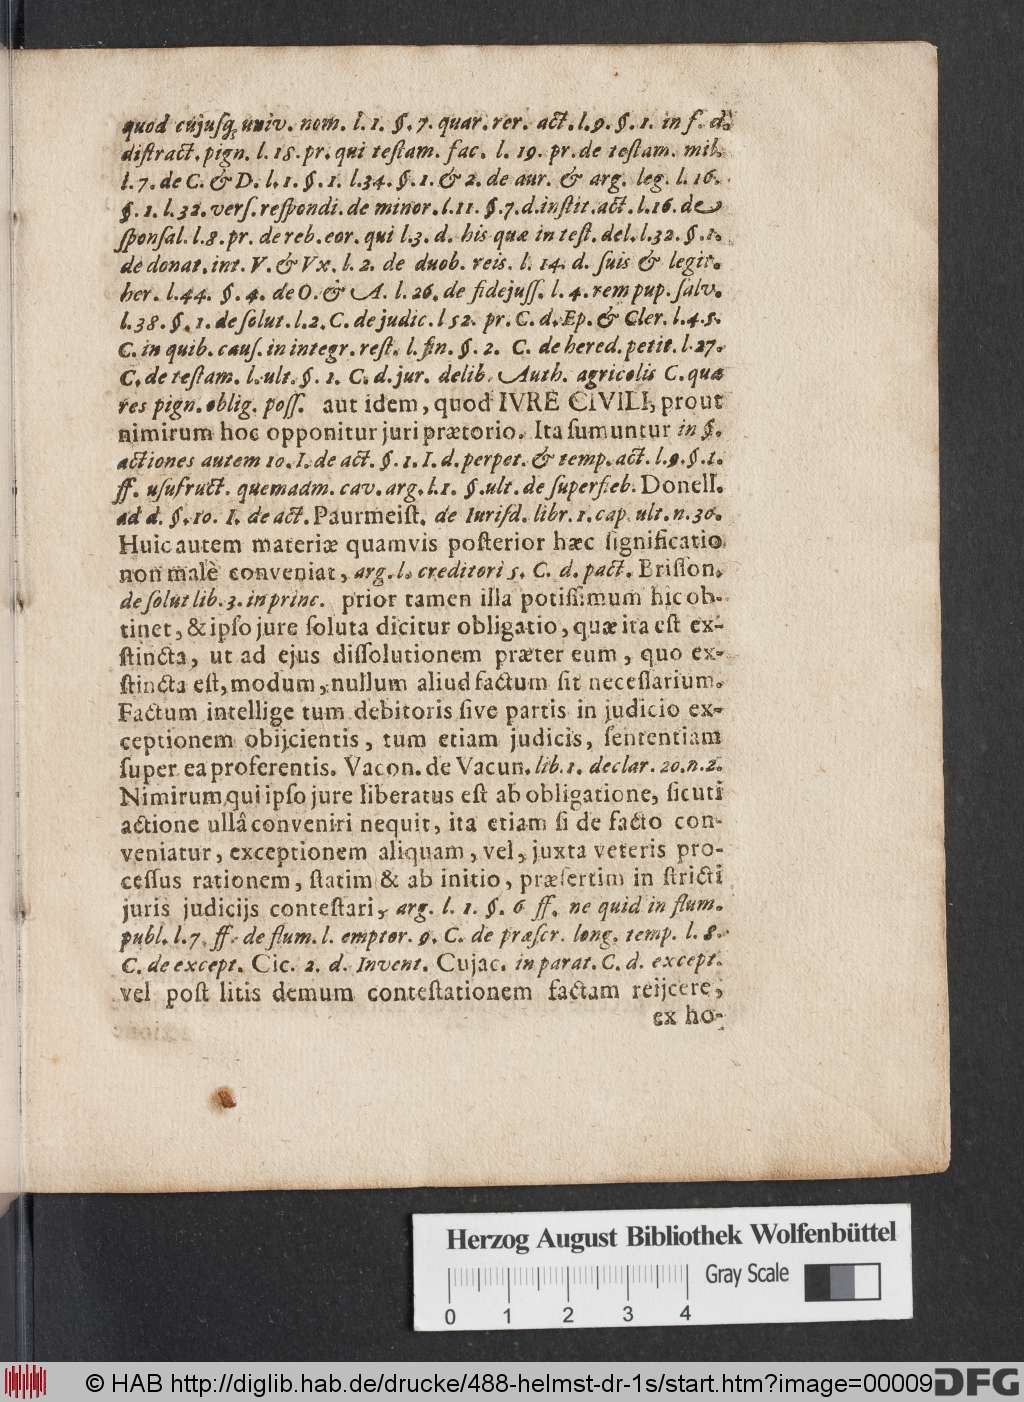 quod cujusq; univ. nom. l. 1. §. 7. quar. rer. act. l. 9. §. 1. in f. d.
distract. pign. l. 18. pr. qui testam. fac. l. 19. pr. de testam. mil.
l. 7. de C. & D. l. 1. §. 1. l. 34. §. 1. & 2. de aur. & arg. leg. l. 16.
§. 1. l. 32. vers. respondi. de minor. l. 11. §. 7. d. instit. act. l. 16. de
sponsal. l. 8. pr. de reb. eor. qui l. 3. d. his quæ in test. del. l. 32. §. 1.
de donat. int. V. & Vx. l. 2. de duob. reis. l. 14. d. suis & legit.
her. l. 44. §. 4. de O. & A. l. 26. de fidejuss. l. 4. rem pup. salv.
l. 38. §. 1. de solut. l. 2. C. de judic. l 52. pr. C. d. Ep. & Cler. l. 4. 5.
C. in quib. caus. in integr. rest. l. fin. §. 2. C. de hered. petit. l. 27.
C. de testam. l. ult. §. 1. C. d. jur. delib. Auth. agricolis C. quæ
res pign. oblig. poss. aut idem, quod IVRE CIVILI, prout
nimirum hoc opponitur juri prætorio. Ita sumuntur in §.
actiones autem 10. I. de act. §. 1. I. d. perpet. & temp. act. l. 9. §. 1.
ff. usufruct. quemadm. cav. arg. l. 1. §. ult. de superfieb. Donell.
ad d. §. 10. I. de act. Paurmeist. de Iurisd. libr. 1. cap. ult. n. 30.
Huic autem materiæ quamvis posterior hæc significatio
non malè conveniat, arg. l. creditori 5. C. d. pact. Brisson.
de solut lib. 3. in princ. prior tamen illa potissimum hic ob-
tinet, & ipso jure soluta dicitur obligatio, quæ ita est ex-
stincta, ut ad ejus dissolutionem præter eum, quo ex-
stincta est, modum, nullum aliud factum sit necessarium.
Factum intellige tum debitoris sive partis in judicio ex-
ceptionem obijcientis, tum etiam judicis, sententiam
super ea proferentis. Vacon. de Vacun. lib. 1. declar. 20. n. 2.
Nimirum qui ipso jure liberatus est ab obligatione, sicuti
actione ullâ conveniri nequit, ita etiam si de facto con-
veniatur, exceptionem aliquam, vel, juxta veteris pro-
cessus rationem, statim & ab initio, præsertim in stricti
juris judicijs contestari, arg. l. 1. §. 6 ff. ne quid in flum.
publ. l. 7. ff. de flum. l. emptor. 9. C. de præscr. long. temp. l. 8.
C. de except. Cic. 2. d. Invent. Cujac. in parat. C. d. except.
vel post litis demum contestationem factam reijcere,
ex ho-
Herzog August Bibliothek Wolfenbüttel
Gray Scale
0 1 2 3 4
© HAB http://diglib.hab.de/drucke/488-helmst-dr-1s/start.htm?image=00009
DFG